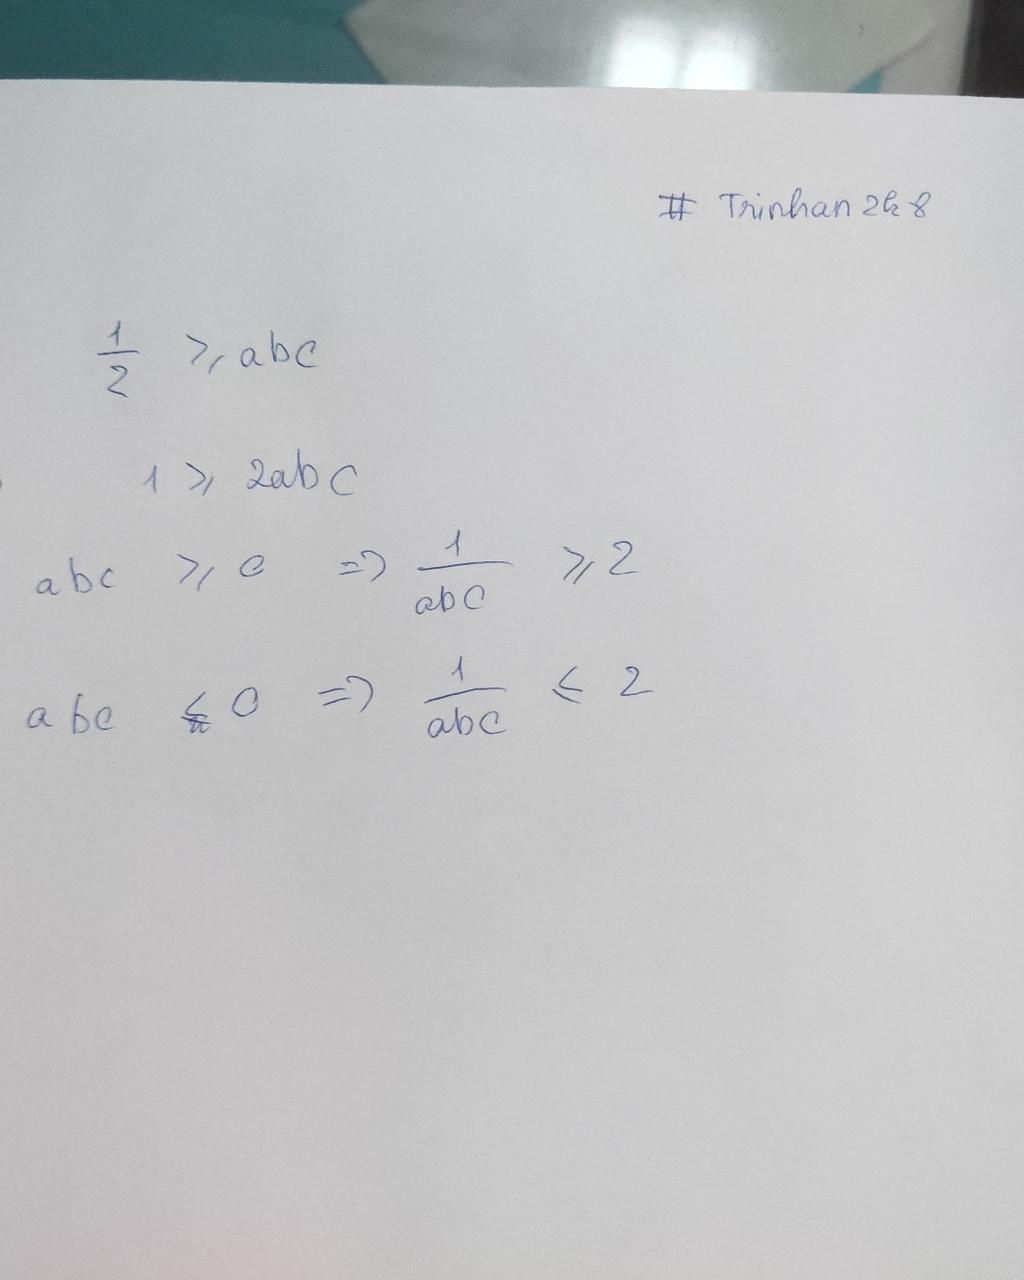 # Trinhan2k8
1/2 ≥ abc
1 ≥ 2abc
abc ≥ 0 => 1/abc ≥ 2
abc ≤ 0 => 1/abc ≤ 2